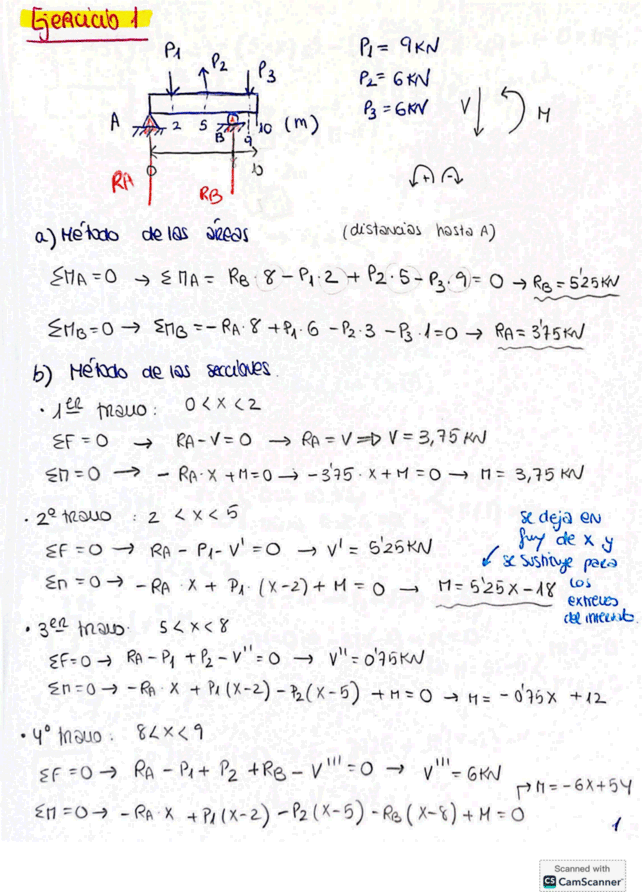 Ejercicio 1
P1 P2 P3
P1 = 9KN
P2 = 6KN
P3 = 6KN
V M
A 2 5 B 9 10 (m)
0 10
RA RB
+ -
a) Método de las áreas (distancias hasta A)
ΣMA = 0 → ΣMA = RB · 8 - P1 · 2 + P2 · 5 - P3 · 9 = 0 → RB = 5'25KN
ΣMB = 0 → ΣMB = -RA · 8 + P1 · 6 - P2 · 3 - P3 · 1 = 0 → RA = 3'75KN
b) Método de las secciones.
· 1er tramo: 0 < x < 2
ΣF = 0 → RA - V = 0 → RA = V ⇒ V = 3,75 KN
ΣM = 0 → - RA · x + M = 0 → -3'75 · x + M = 0 → M = 3,75 KN
· 2º tramo : 2 < x < 5
ΣF = 0 → RA - P1 - V' = 0 → V' = 5'25KN
ΣM = 0 → -RA · x + P1 · (x-2) + M = 0 → M = 5'25x - 18
se deja en
de x y
se sustituye para
los
extremos
del intervalo.
· 3er tramo. 5 < x < 8
ΣF = 0 → RA - P1 + P2 - V'' = 0 → V'' = 0'75KN
ΣM = 0 → -RA · x + P1(x-2) - P2(x-5) + M = 0 → M = -0'75x + 12
· 4º tramo: 8 < x < 9
ΣF = 0 → RA - P1 + P2 + RB - V''' = 0 → V''' = 6KN
ΣM = 0 → -RA · x + P1(x-2) - P2(x-5) - RB(x-8) + M = 0
→ M = -6x + 54
1
Scanned with
CS CamScanner